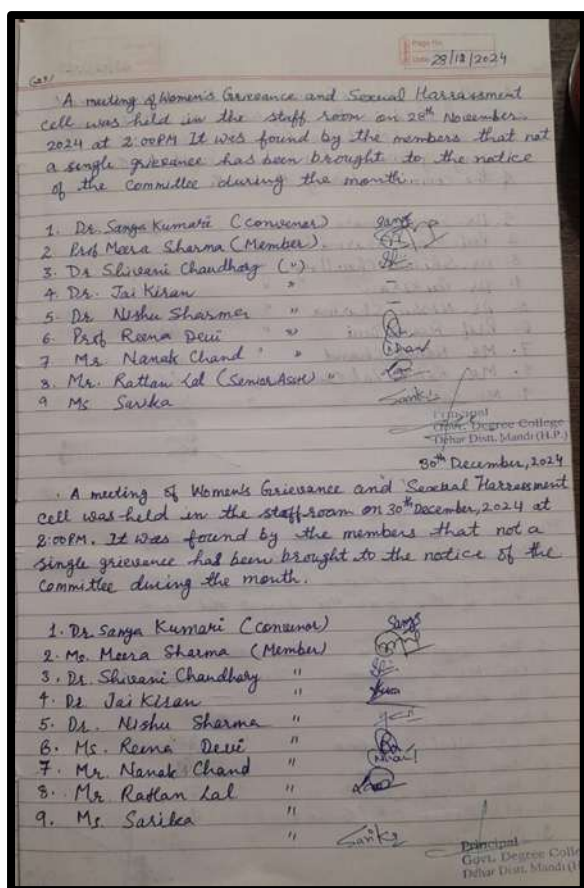 Page No.
Date 28/12/2024
A meeting of Women's Grievance and Sexual Harrassment
cell was held in the staff room on 28th November
2024 at 2:00PM It was found by the members that not
a single grievance has been brought to the notice
of the Committee during the month.
1. Dr. Sanga Kumari (Convenor)
2 Prof Meera Sharma (Member)
3. Dr Shivani Chaudhary (")
4. Dr. Jai Kiran "
5. Dr Nishu Sharma "
6. Prof Reena Devi "
7 Mr. Nanak Chand "
8. Mr. Rattan Lal (Senior Asstt) "
9 Ms Sarika
Principal
Govt. Degree College
Dehar Distt. Mandi (H.P.)
30th December, 2024
A meeting of Women's Grievance and Sexual Harressment
cell was held in the staff room on 30th December, 2024 at
2:00PM. It was found by the members that not a
single grievance has been brought to the notice of the
Committee during the month.
1. Dr. Sanga Kumari (Convenor)
2. Ms. Meera Sharma (Member)
3. Dr. Shivani Chandhary "
4. Dr Jai Kiran "
5. Dr. Nishu Sharma "
6. Ms. Reena Devi "
7. Mr. Nanak Chand "
8. Mr Rattan Lal "
9. Ms. Sarika "
"
Principal
Govt. Degree
Dehar Distt. Mandi